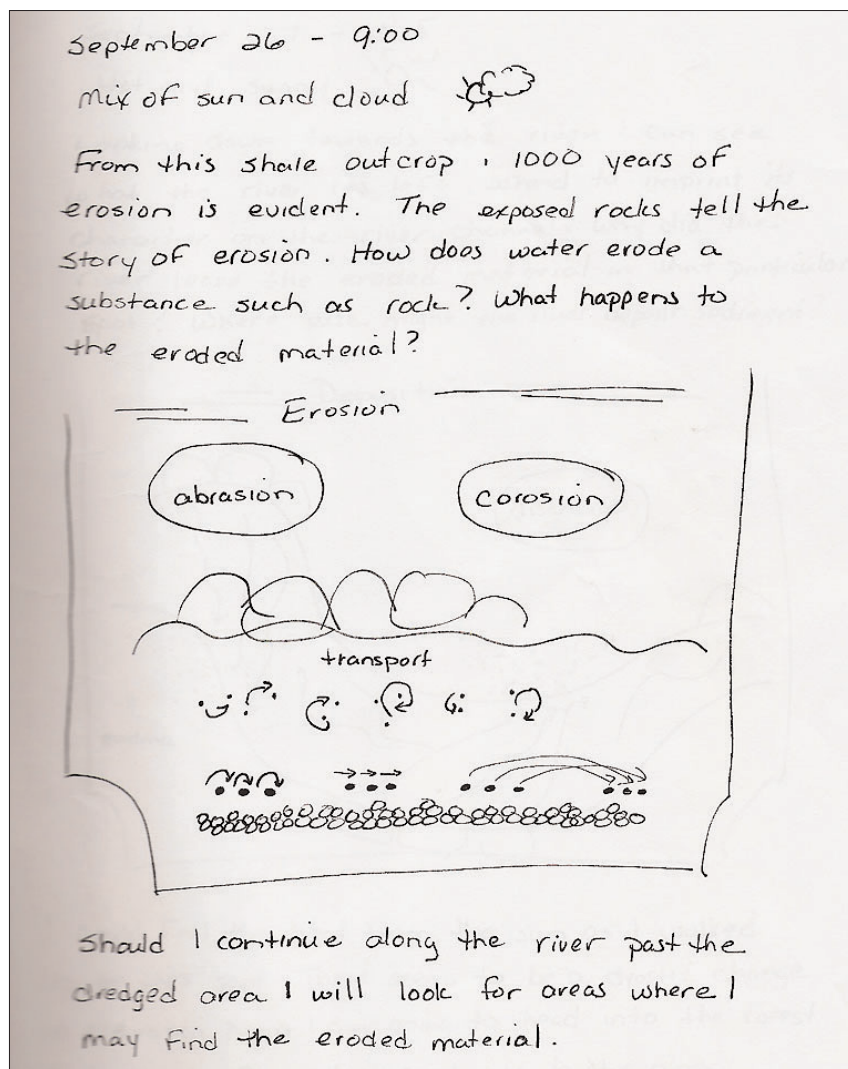 September 26 - 9:00
Mix of sun and cloud
From this shale outcrop, 1000 years of
erosion is evident. The exposed rocks tell the
story of erosion. How does water erode a
substance such as rock? What happens to
the eroded material?
Erosion
abrasion
corosion
transport
Should I continue along the river past the
dredged area I will look for areas where I
may find the eroded material.